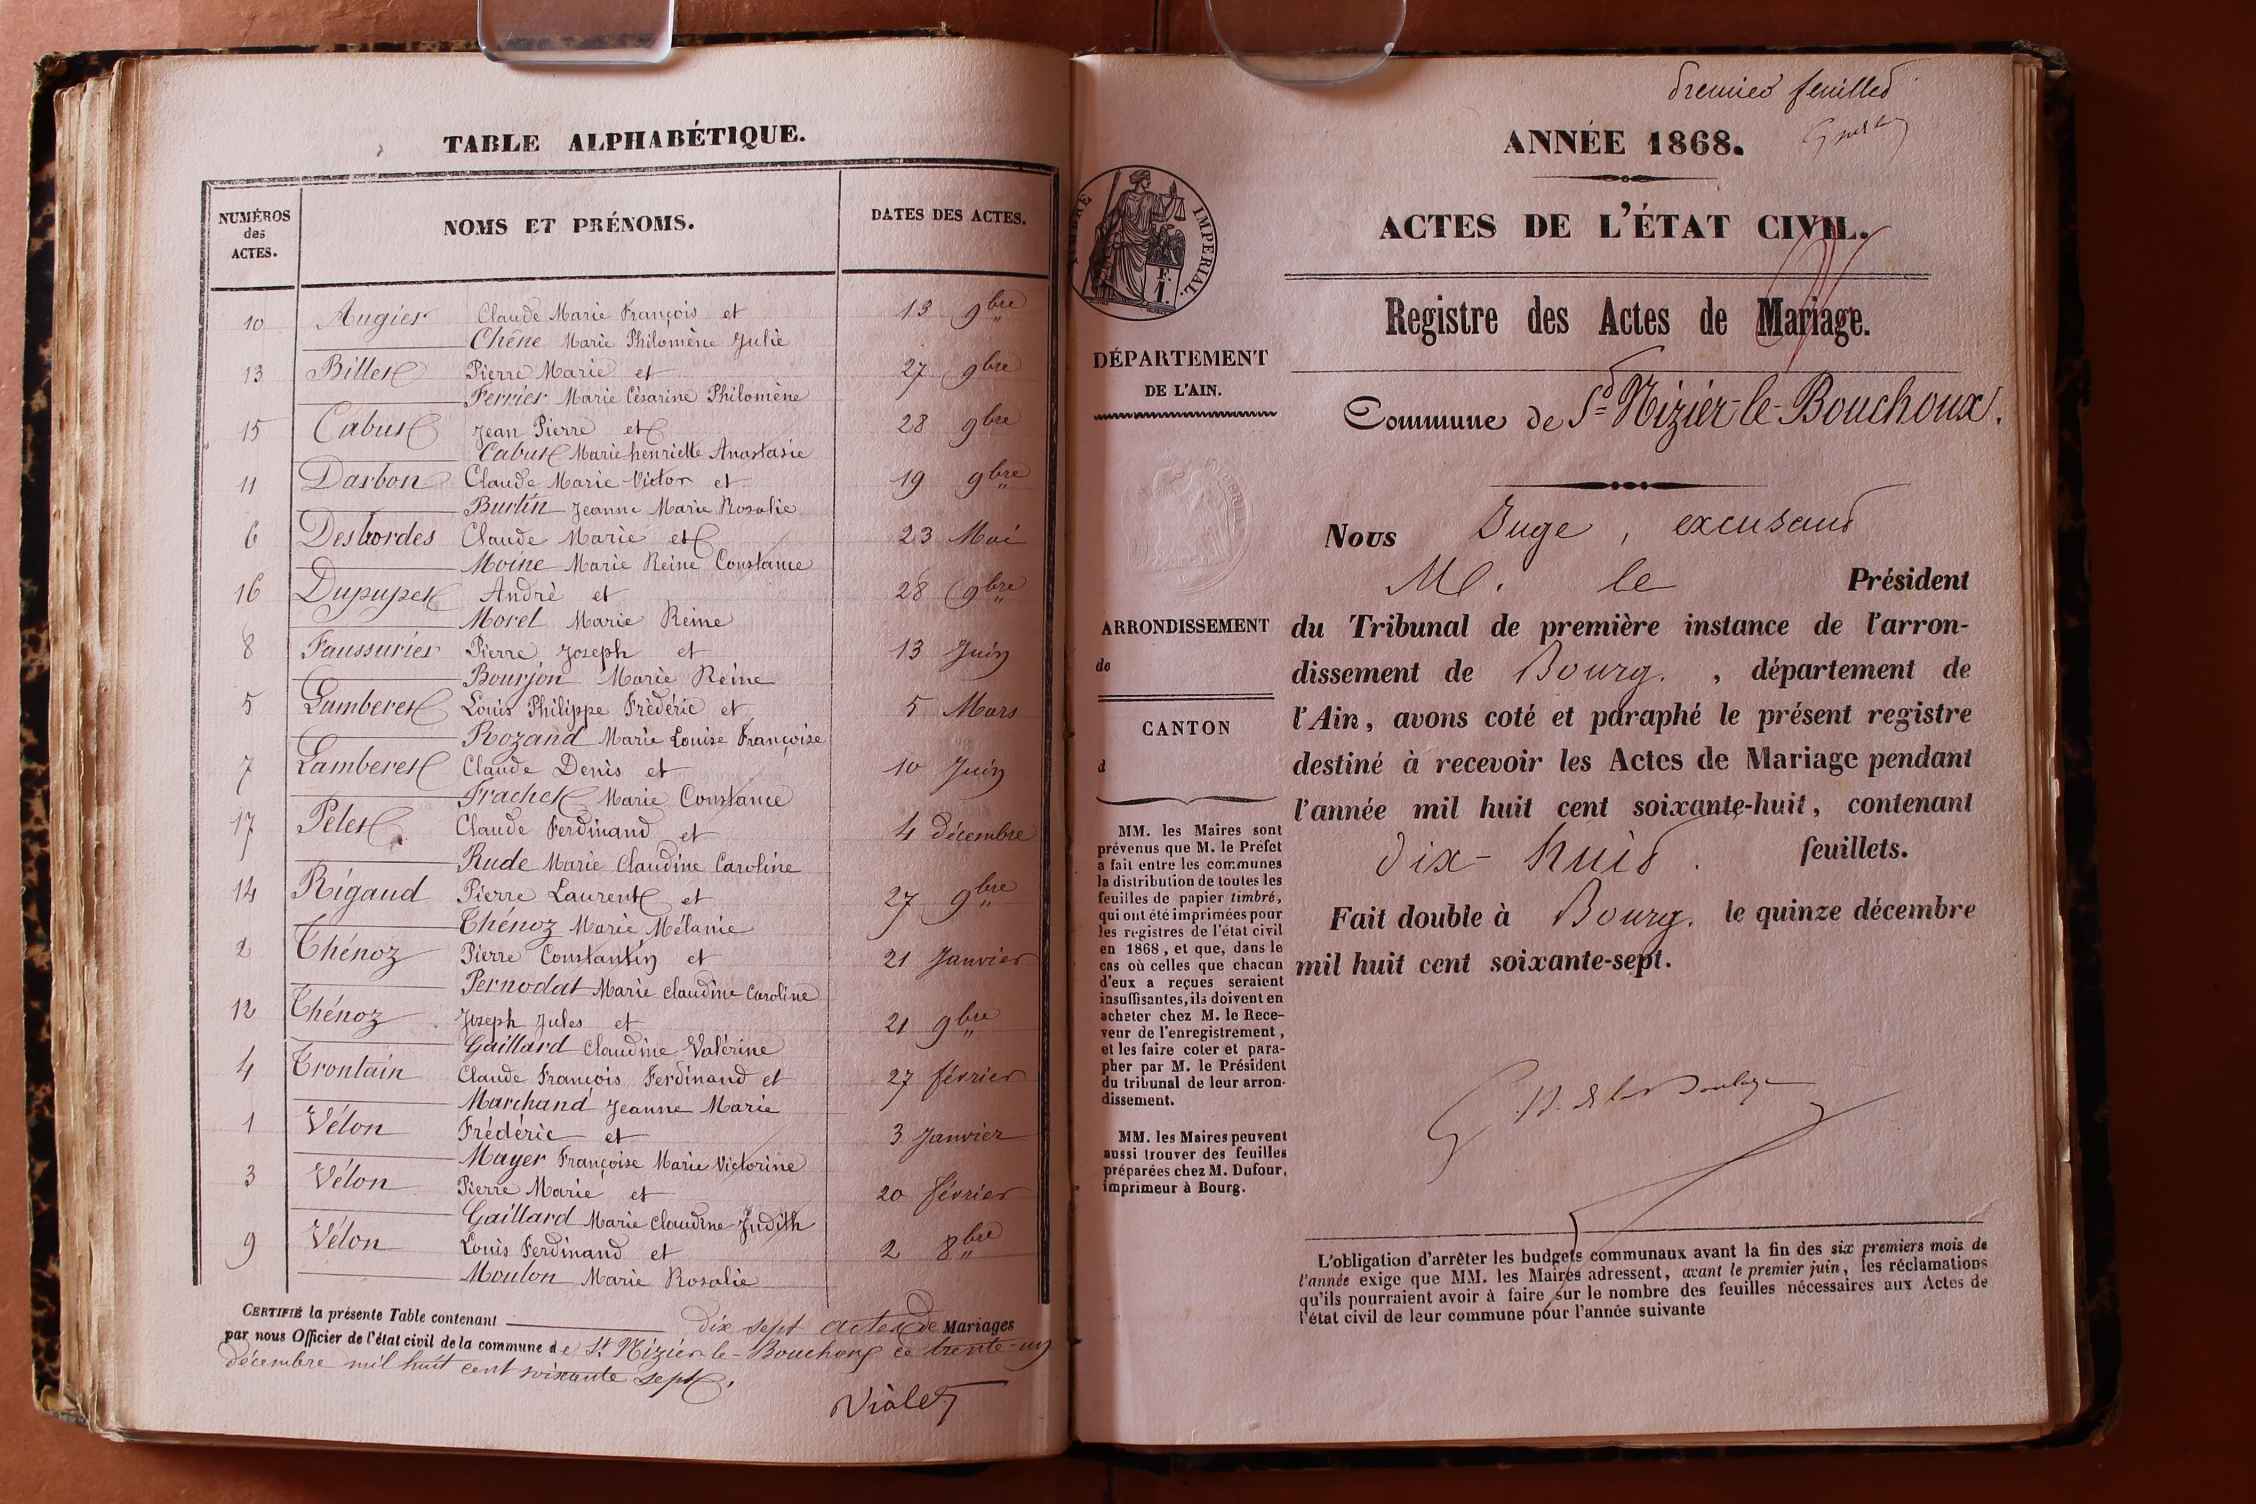 TABLE ALPHABÉTIQUE.
NUMÉROS
des
ACTES.
NOMS ET PRÉNOMS.
DATES DES ACTES.
10 Augier Claude Marie François et 13 9bre
Chêne Marie Philomène Julie
13 Billet Pierre Marie et 27 9bre
Ferrier Marie Césarine Philomène
15 Cabut Jean Pierre et 28 9bre
Cabut Marie henriette Anastasie
11 Darbon Claude Marie Victor et 19 9bre
Burtin Jeanne Marie Rosalie
6 Desbordes Claude Marie et 23 Mai
Moine Marie Reine Constance
16 Dupupet André et 28 9bre
Morel Marie Reine
8 Faussurier Pierre Joseph et 13 Juin
Bourjon Marie Reine
5 Lamberet Louis Philippe Frédéric et 5 Mars
Rozand Marie Louise Françoise
7 Lamberet Claude Denis et 10 Juin
Trachet Marie Constance
17 Pelet Claude Ferdinand et 4 décembre
Rude Marie Claudine Caroline
14 Rigaud Pierre Laurent et 27 9bre
Thénoz Marie Mélanie
2 Thénoz Pierre Constantin et 21 Janvier
Pernodat Marie Claudine Caroline
12 Thénoz Joseph Jules et 21 9bre
Gaillard Claudine Valérine
4 Trontain Claude François Ferdinand et 27 février
Marchand Jeanne Marie
1 Vélon Frédéric et 3 Janvier
Mayer Françoise Marie Victorine
3 Vélon Pierre Marie et 20 février
Gaillard Marie Claudine Judith
9 Vélon Louis Ferdinand et 2 8bre
Moulon Marie Rosalie
CERTIFIÉ la présente Table contenant dix sept actes de Mariages
par nous Officier de l'état civil de la commune de St Nizier le-Bouchoux ce trente-un
décembre mil huit cent soixante sept.
Violet
premier feuillet
ANNÉE 1868.
ACTES DE L'ÉTAT CIVIL.
Registre des Actes de Mariage.
Commune de St Nizier-le-Bouchoux.
TIMBRE IMPÉRIAL.
F.
1
DÉPARTEMENT
DE L'AIN.
ARRONDISSEMENT
de
CANTON
d
MM. les Maires sont
prévenus que M. le Préfet
a fait entre les communes
la distribution de toutes les
feuilles de papier timbré,
qui ont été imprimées pour
les registres de l'état civil
en 1868, et que, dans le
cas où celles que chacun
d'eux a reçues seraient
insuffisantes, ils doivent en
acheter chez M. le Rece-
veur de l'enregistrement,
et les faire coter et para-
pher par M. le Président
du tribunal de leur arron-
dissement.
MM. les Maires peuvent
aussi trouver des feuilles
préparées chez M. Dufour,
imprimeur à Bourg.
Nous Juge, excusant
M. le Président
du Tribunal de première instance de l'arron-
dissement de Bourg. , département de
l'Ain, avons coté et paraphé le présent registre
destiné à recevoir les Actes de Mariage pendant
l'année mil huit cent soixante-huit, contenant
dix-huit. feuillets.
Fait double à Bourg. le quinze décembre
mil huit cent soixante-sept.
L'obligation d'arrêter les budgets communaux avant la fin des six premiers mois de
l'année exige que MM. les Maires adressent, avant le premier juin, les réclamations
qu'ils pourraient avoir à faire sur le nombre des feuilles nécessaires aux Actes de
l'état civil de leur commune pour l'année suivante